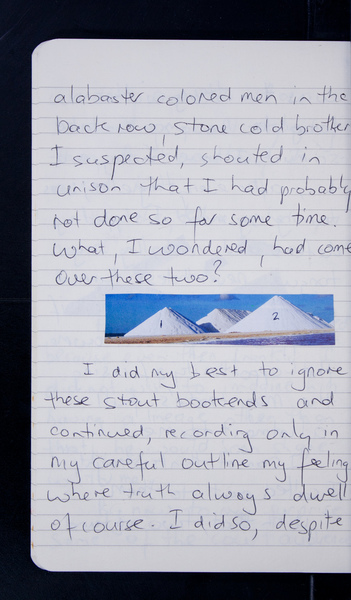 alabaster colored men in the
back row, stone cold brother
I suspected, shouted in
unison that I had probably
not done so for some time.
What, I wondered, had come
over these two?
1
2
I did my best to ignore
these stout bookends and
continued, recording only in
my careful outline my feeling
where truth always dwell
of course. I did so, despite